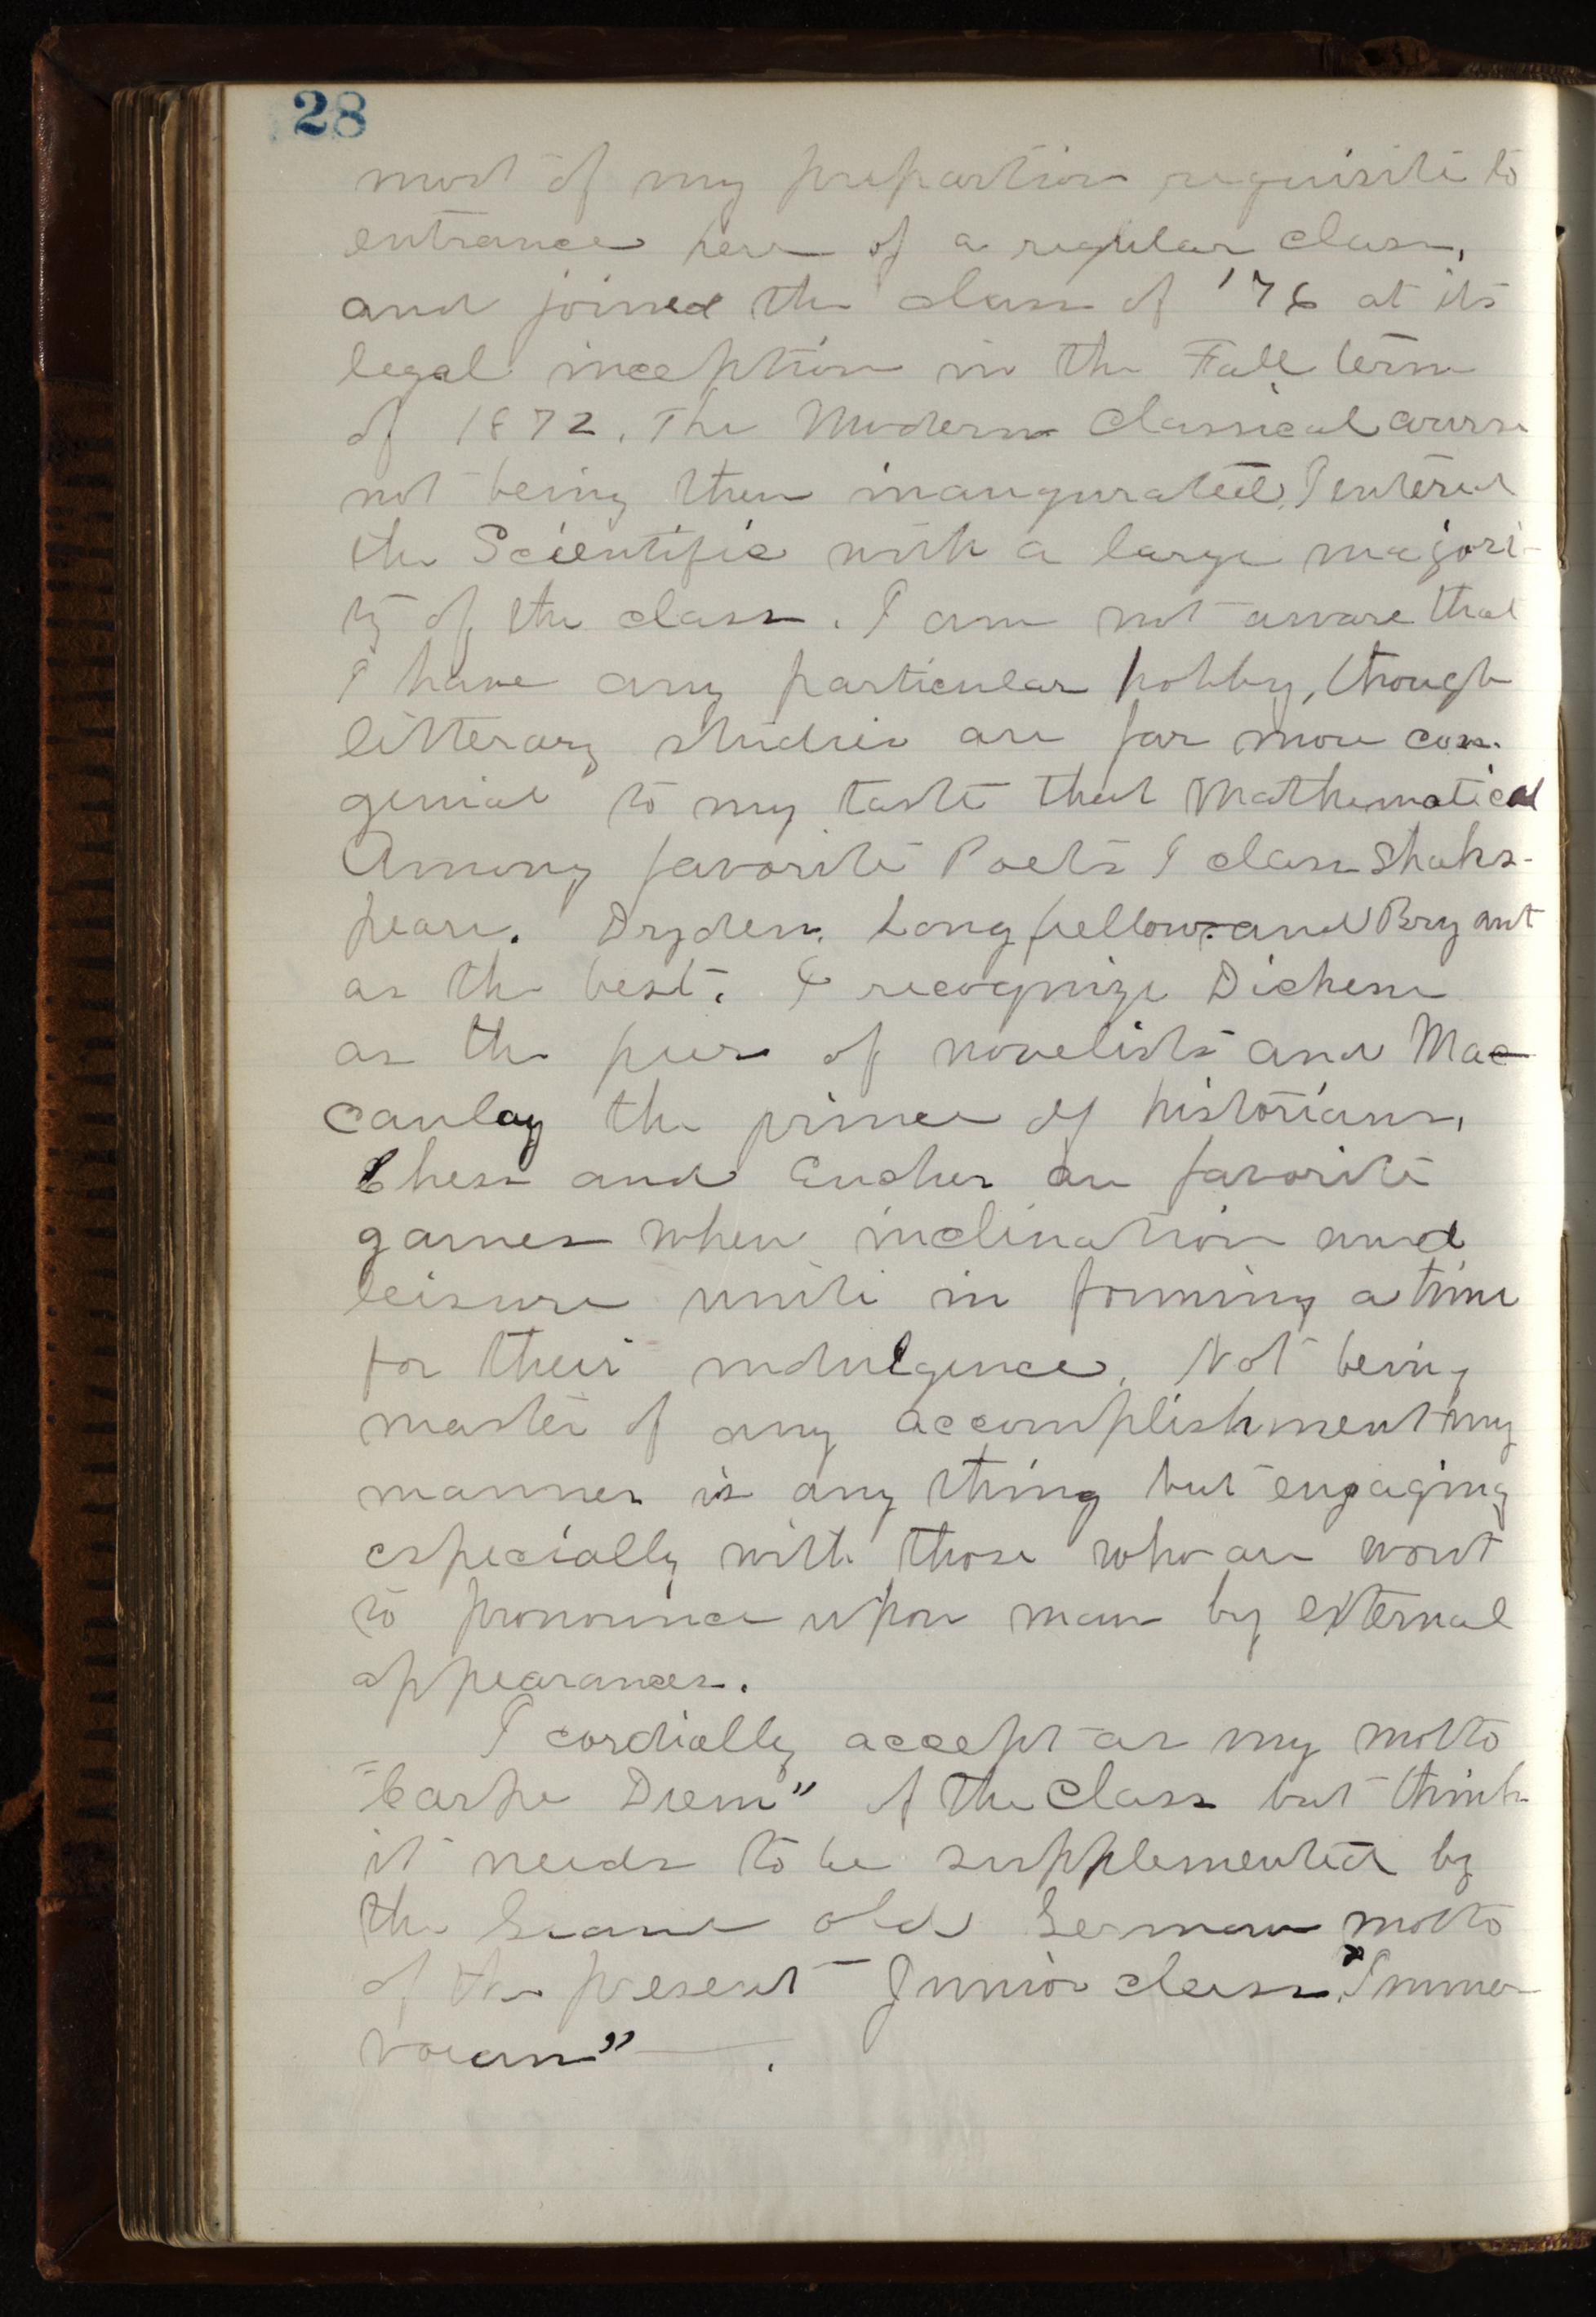 28
most of my prepartion requisite to
entrance here of a regular class,
and joined the class of '76 at its
legal inception in the Fall term
of 1872. The Modern Classical course
not being then inaugurated, I entered
the Scientific with a large majori-
ty of the class. I am not aware that
I have any particular hobby, though
litterary studies are far more con-
genial to my taste that Mathematical
Among favorite Poets I class Shaks-
peare. Dryden, Longfellow and Bryant
as the best. I recognize Dickens
as the peer of novelists and Mac
caulay the prince of historians,
Chess and Eucher are favorite
games when inclination and
leisure unite in forming a time
for their indulgence. Not being
master of any accomplishment my
manner is any thing but engaging
especially with those who are wont
to pronounce upon man by external
appearances.
I cordially accept as my motto
"Carpe Diem" of the Class but think
it needs to be supplemented by
the Grand old German motto
of the present Junior class "Immer
voran" .